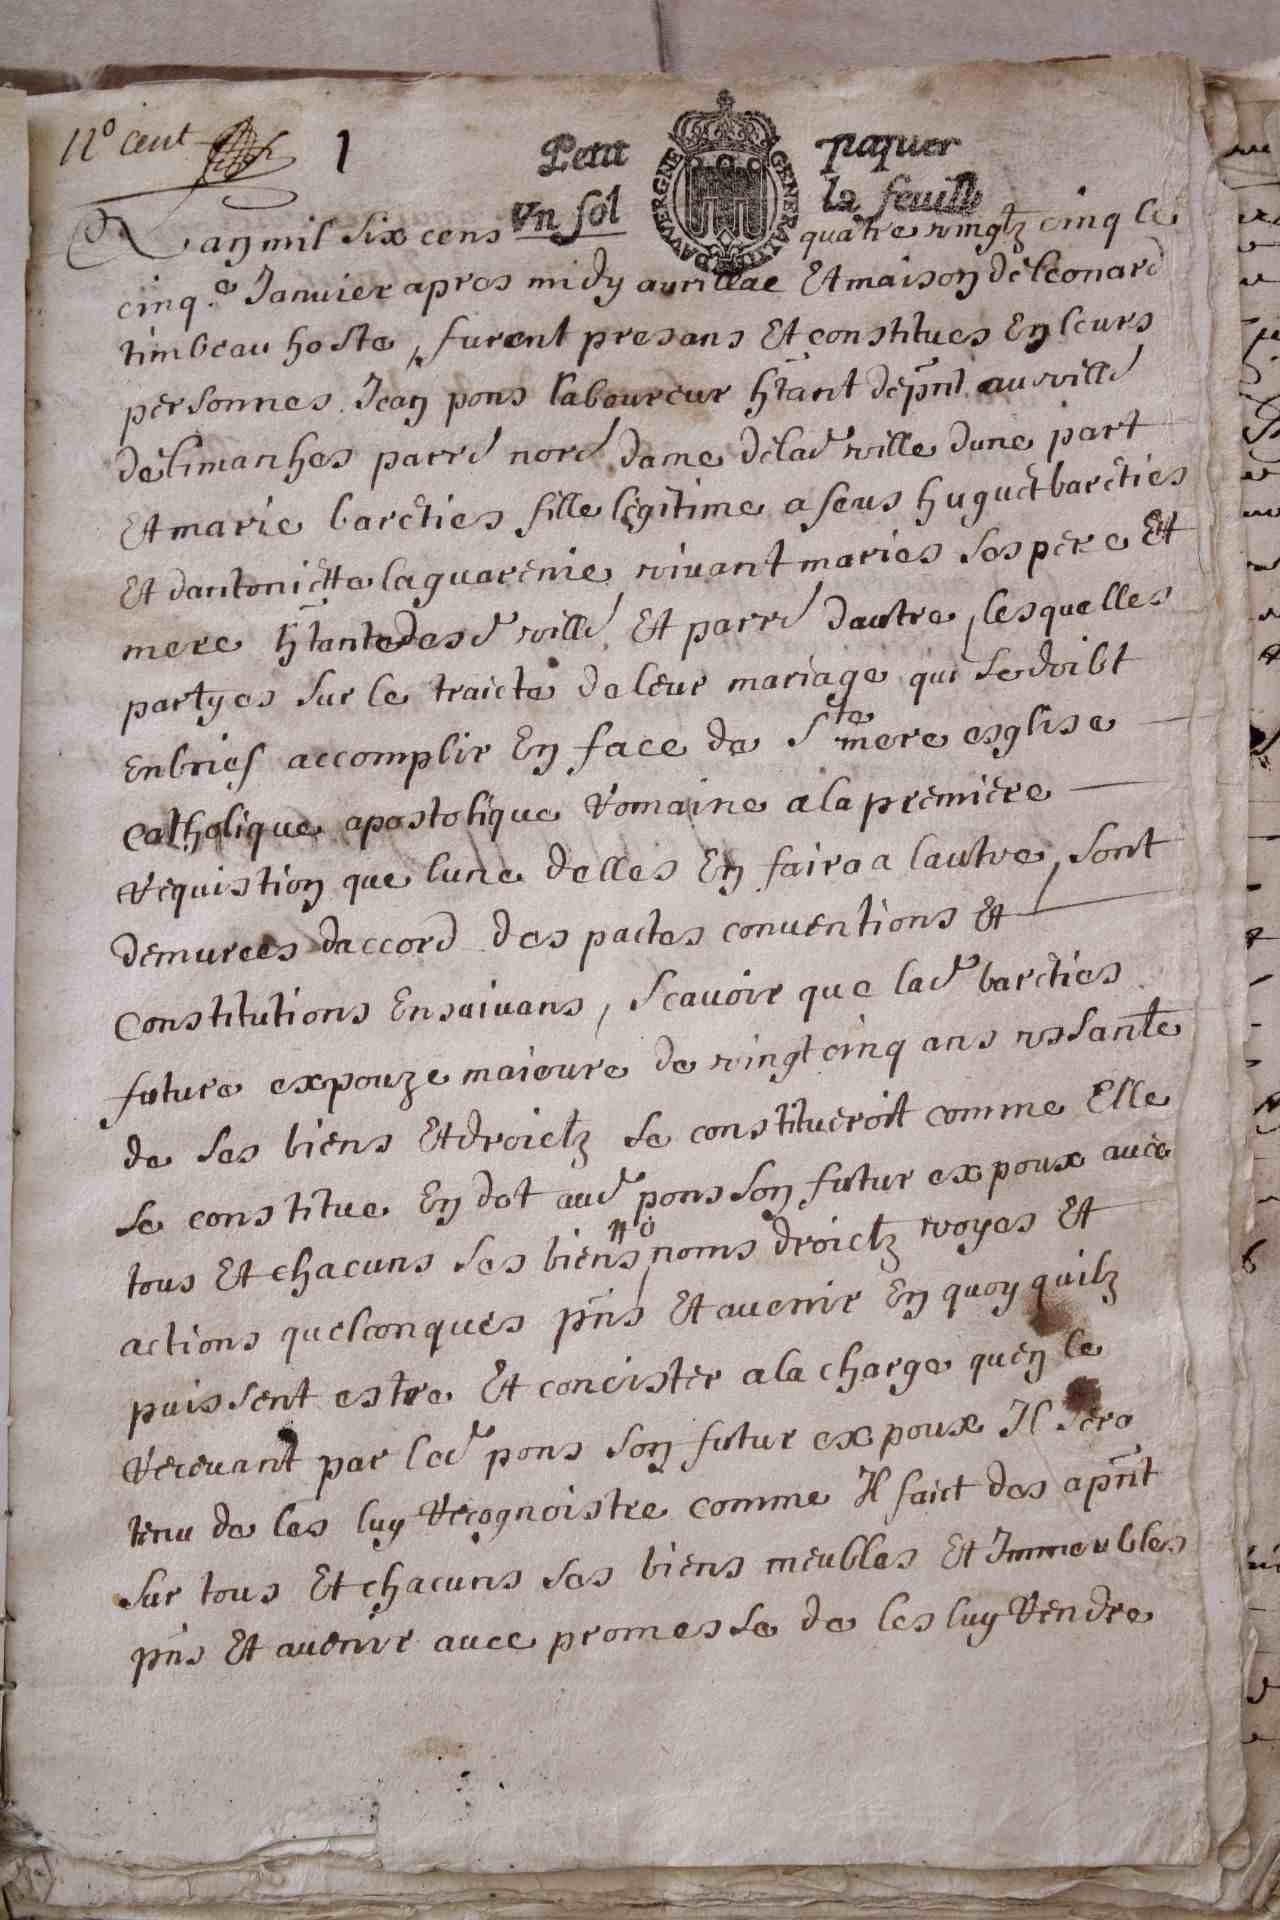 11º cent 1
Petit papier
un sol la feuille
D'AVVERGNE GENERALITE
Lan mil six cens quatre vingtz cinq le
cinq.e Januier apres midy aurillac Et maison de leonard
timbeau hoste, furent presans Et constitues En leurs
personnes Jean pons laboureur htant de pnt au villa
de limanhes parre nore dame de lad ville dune part
Et marie barcties fille legitime a feus huguet barcties
Et dantoniette laguarenie vivant maries ses pere Et
mere htante des d villa Et parre dautre, lesquelles
partyes sur le traicte de leur mariage qui se doibt
En brief accomplir En face de Ste mere esglise
catholique apostolique Romaine a la premiere
requistion que lune delles En faira a lautre, sont
demurees daccord des pactes conuentions Et
constitutions Ensuiuans, scauoir que lad barcties
future expouze maieure de vingt cinq ans vsante
de ses biens Et droictz se constitueroit comme Elle
se constitue En dot aud pons son futur expoux auec
tous Et chacuns ses biens, noms droictz voyes Et
actions quelconques pns Et auenir En quoy quilz
puissent estre Et concister a la charge quen le
receuant par led pons son futur expoux Il sera
tenu de les luy recognoistre comme Il faict des apnt
sur tous Et chacuns ses biens meubles Et Immeubles
pns Et auenir auec promesse de les luy rendre